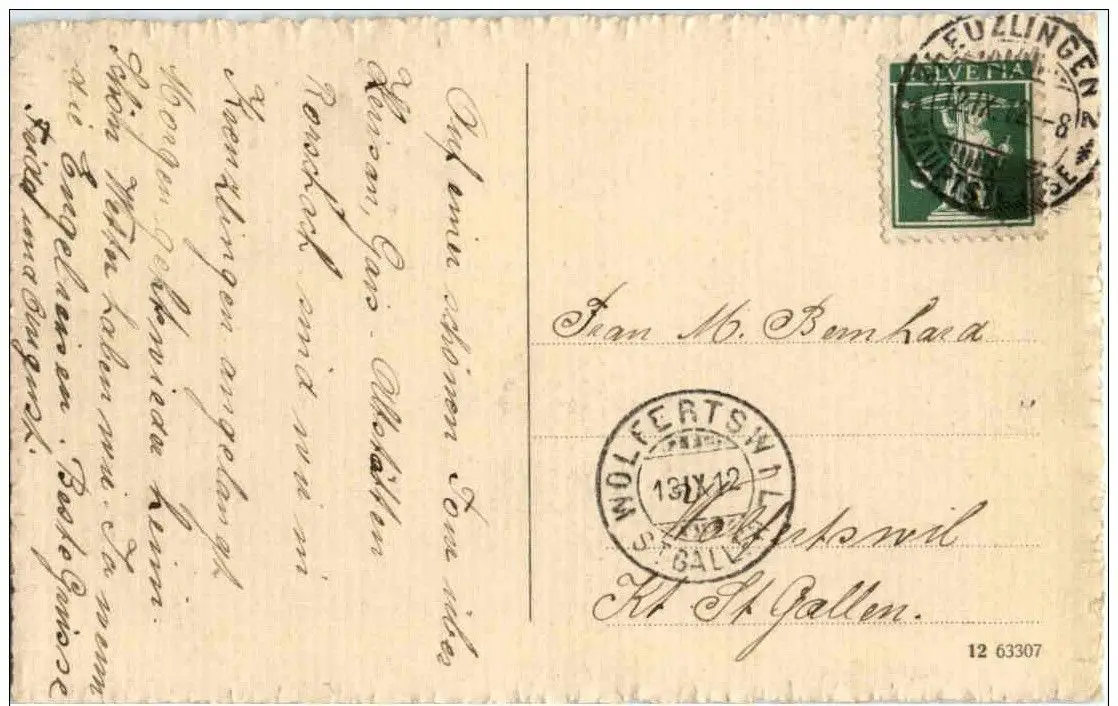 Auf einer schönen Tour über
Herisau, Gais - Altstätten
Rorschach sind wir in
Kreuzlingen angelangt
Morgen gehts wieder heim.
Schön Wetter haben wir. Ja wenn
die Engel reisen. Beste Grüsse
Frida und August.
KREUZLINGEN 2
12.IX.12-8
HAUPTSTRASSE
HELVETIA
Frau M. Bernhard
WOLFERTSWIL
13.IX.12
(ST GALLEN)
Wolfertswil
Kt. St. Gallen.
12 63307